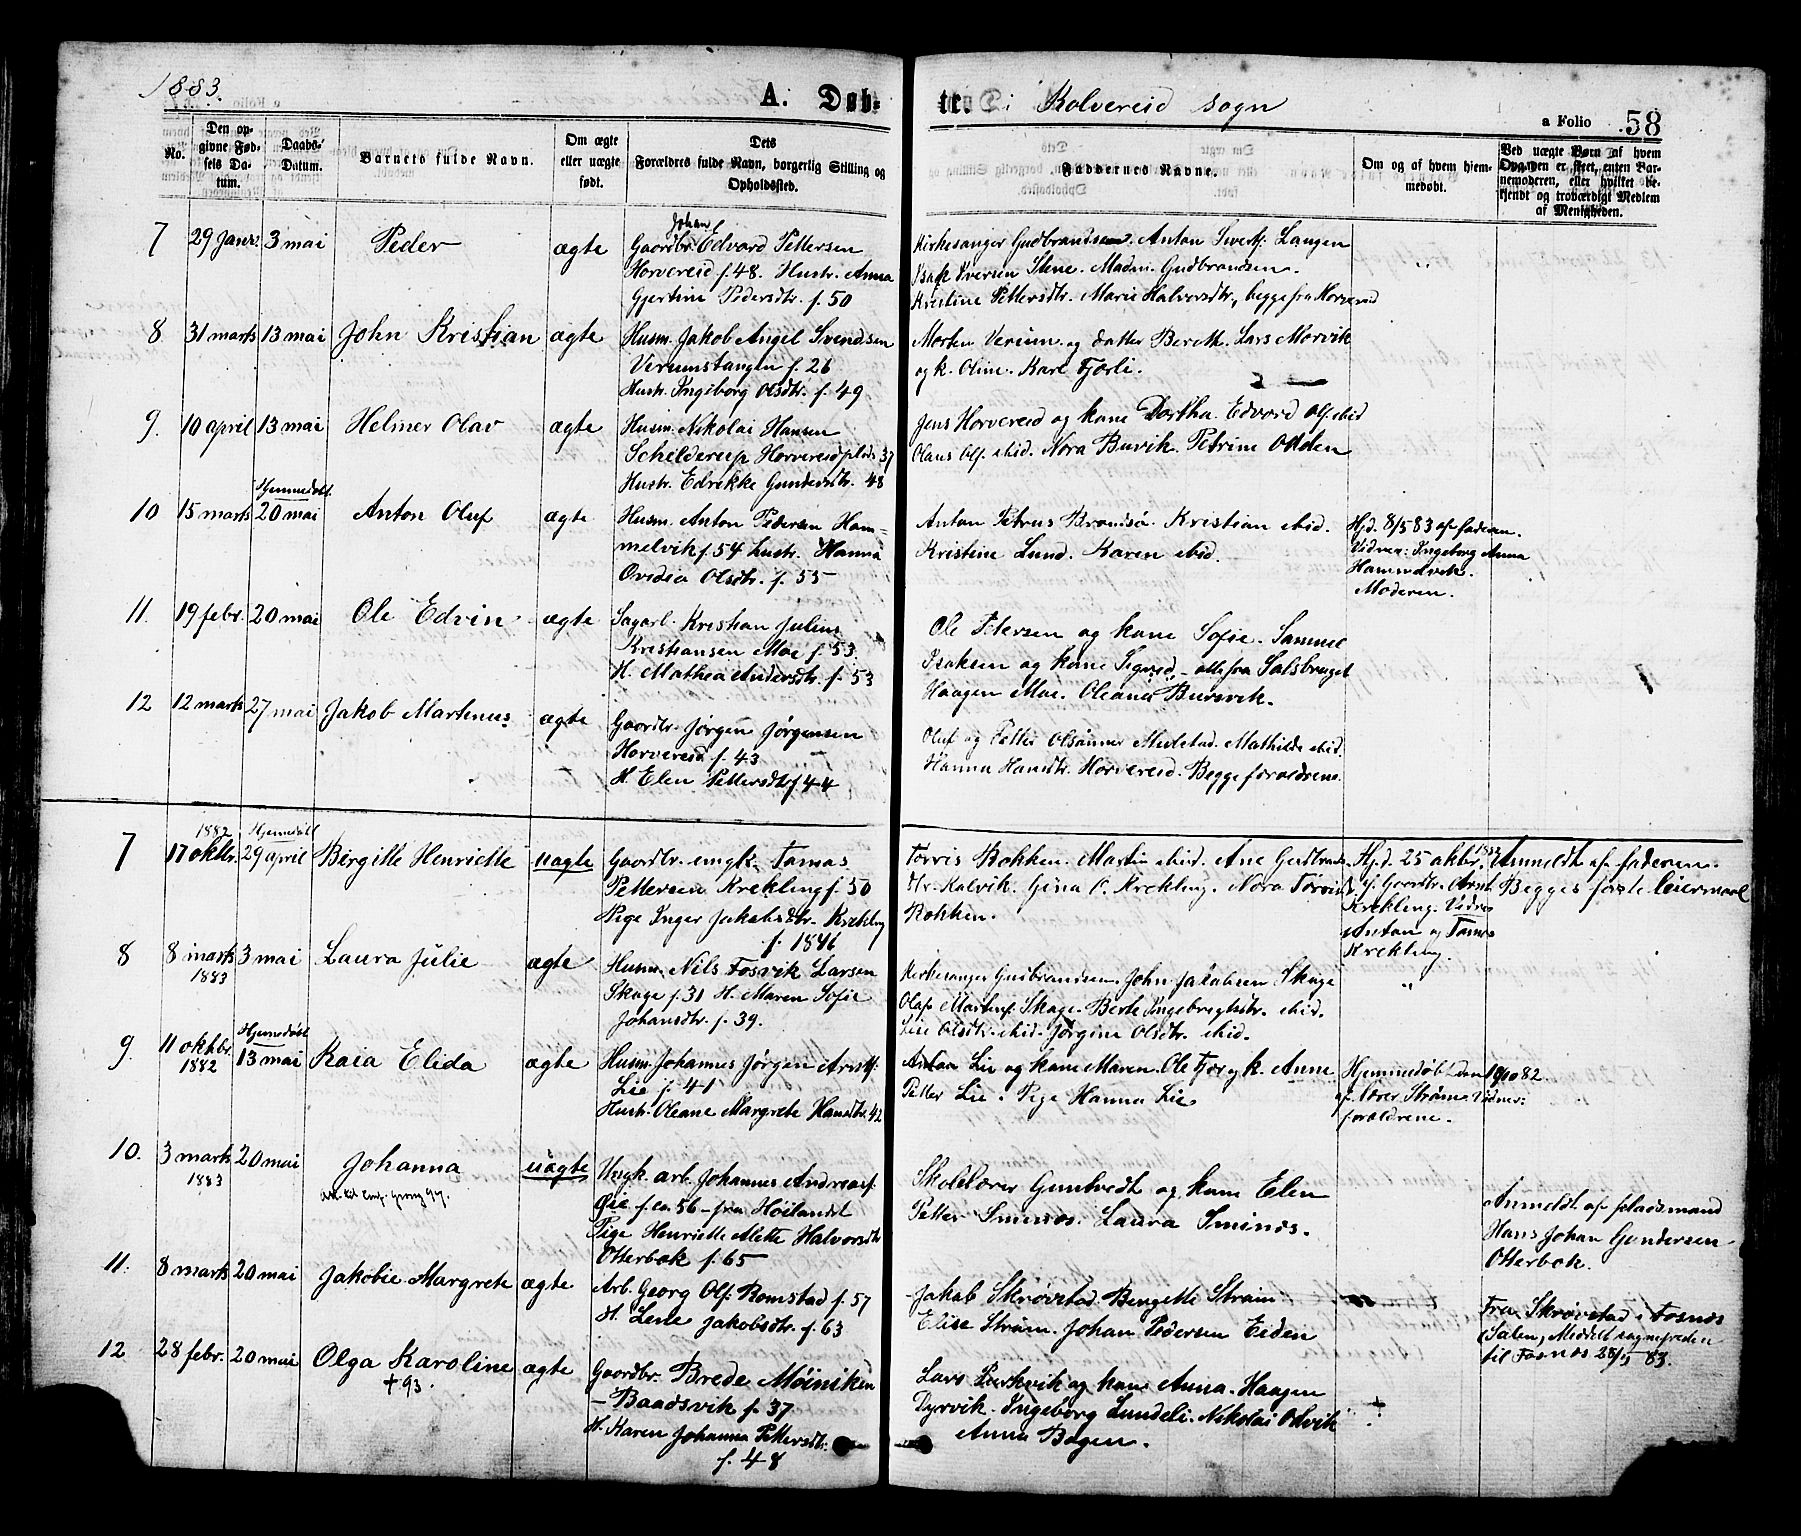 1883.
A. Døb-
te. i Kolvereid sogn
a Folio 58
No.
Den op-
givne Fød-
sels Da-
tum.
Daabs-
Datum.
Barnets fulde Navn.
Om ægte
eller uægte
født.
Dets
Forældres fulde Navn, borgerlig Stilling og
Opholdssted.
Faddernes Navne.
Om og af hvem hjem-
medøbt.
Ved uægte Børn af hvem
Opgaven er skeet, enten Bar-
nemoderen, eller hvilket be-
kjendt og troværdigt Medlem
af Menigheden.
7 29 Janr. 3 mai Peder ægte
Johan
Gaardbr. Edvard Pettersen
Horvereid f. 48. Hustr. Anna
Gjertine Pedersdtr. f. 50
Kirkesanger Gudbrandsen. Anton Sivertf. Laugen
Isak Iversen Stene. Madm. Gudbrandsen.
Kristine Pettersdtr. Marie Halvorsdtr, begge fra Horvereid
"
8 31 marts 13 mai John Kristian ægte
Husm. Jakob Angel Svendsen
Verumstangen f. 26
Hustr. Ingeborg Olsdtr. f. 49
Morten Verum og datter Bereth. Lars Morvik
og k. Oline. Karl Fjærli.
9. 10 april 13 mai Helmer Olav ægte
Husm. Nikolai Hansen
Schelderup Horvereidplads 37
Hustr. Edrikke Gundersdtr. 48
Jens Horvereid og kone Dorthea. Edvard Olf. ibid
Olaus Olf. ibid. Nora Buvik. Petrine Odden
10 15 marts Hjemmedøbt 20 mai Anton Oluf ægte
Husm. Anton Pedersen Ham-
melvik f. 54 hustr. Hanna
Ovidia Olsdtr. f. 55
Anton Petrus Brandsø. Kristian ibid.
Kristine Lund. Karen ibid.
Hjd. 8/5 83 af faderen.
Vidner: Ingeborg Anna
Hammelvik.
Moderen.
11. 19 febr. 20 mai Ole Edvin ægte
Sagarb. Kristian Julius
Kristiansen Moe f. 53
H. Mathea Andersdtr. f. 53
Ole Petersen og kone Sofie. Samuel
Isaksen og kone Sigrid, - alle fra Salsbruget
Haagen Moe. Oleana Bursvik.
12 12 marts 27 mai Jakob Martinus ægte
Gaardbr. Jørgen Jørgensen
Horvereid f. 43
H. Elen Pettersdtr f. 44
Oluf og Petter Olsønner Mulstad. Mathilde ibid.
Hanna Hansdtr. Horvereid. Begge forældrene.
7 1882 17 oktbr. Hjemmedøbt 29 april Birgitte Henriette uægte
Gaardbr. ungk. Tomas
Pettersen Krekling f. 50
Pige Inger Jakobsdtr. Krekling
f. 1846
Torris Rokken. Martin ibid. Ane Gudbrands
dtr. Kalvik. Gina O. Krekling. Nora Torris
Rokken.
Hjd. 25 oktbr. 1882
af Gaardbr. Arnt
Krekling. Vidner
Anton og Tomas
Krekling.
Anmeldt af faderen.
Begges første leiermaal
8 8 marts 1883 3 mai Laura Julie ægte
Husm. Nils Fosvik Larsen
Skage f. 31 H. Maren Sofie
Johansdtr. f. 39.
Kirkesanger Gudbrandsen. John Jakobsen Skage
Olaf Martinf. Skage. Berte Ingebregtsdtr. ibid.
Lise Olsdtr. ibid. Jørgine Olsdtr. ibid.
"
9. 11 oktbr. 1882 Hjemmedøbt 13 mai Kaia Elida ægte
Husm. Johannes Jørgen Arntf.
Lie f. 41
Hustr. Oleane Margrete Hansdtr. 42
Anton Lie og kone Maren. Ole Fjær og k. Anne
Petter Lie. Pige Hanna Lie
Hjemmedøbt den 19/10 82.
af lærer Strøm. Vidner:
forældrene.
10. 3 marts 1883 20 mai Johanna uægte
Ungk. arb. Johannes Andreasf.
Øie f. ca. 56 - fra Høilandet
Pige Henriette Mette Halvorsdtr
Otterbæk f. 65
Skolelærer Guntvedt og kone Elen
Petter Smines. Laura Smines.
Anmeldt af pladsmand
Hans Johan Gundersen
Otterbæk.
11. 8 marts 20 mai Jakobie Margrete ægte
Arb. Georg Olf. Romstad f. 57
H. Lene Jakobsdtr. f. 63
Jakob Skrøvstad. Bergette Strøm
Elise Strøm. Johan Pedersen Eiden
Fra Skrøvstad i Fosnes
Meddelt sognepresten
til Fosnes 28/5 83.
12 28 febr. 20 mai Olga Karoline ægte
† 93.
Gaardbr. Brede Møiniken
- Baadsvik f. 37
H. Karen Johanna Pettersdtr.
f. 48
Lars Lurkvik og kone Anna. Haagen
Dyrvik. Ingeborg Lundeli. Nikolai Odvik
Anna Bogen.